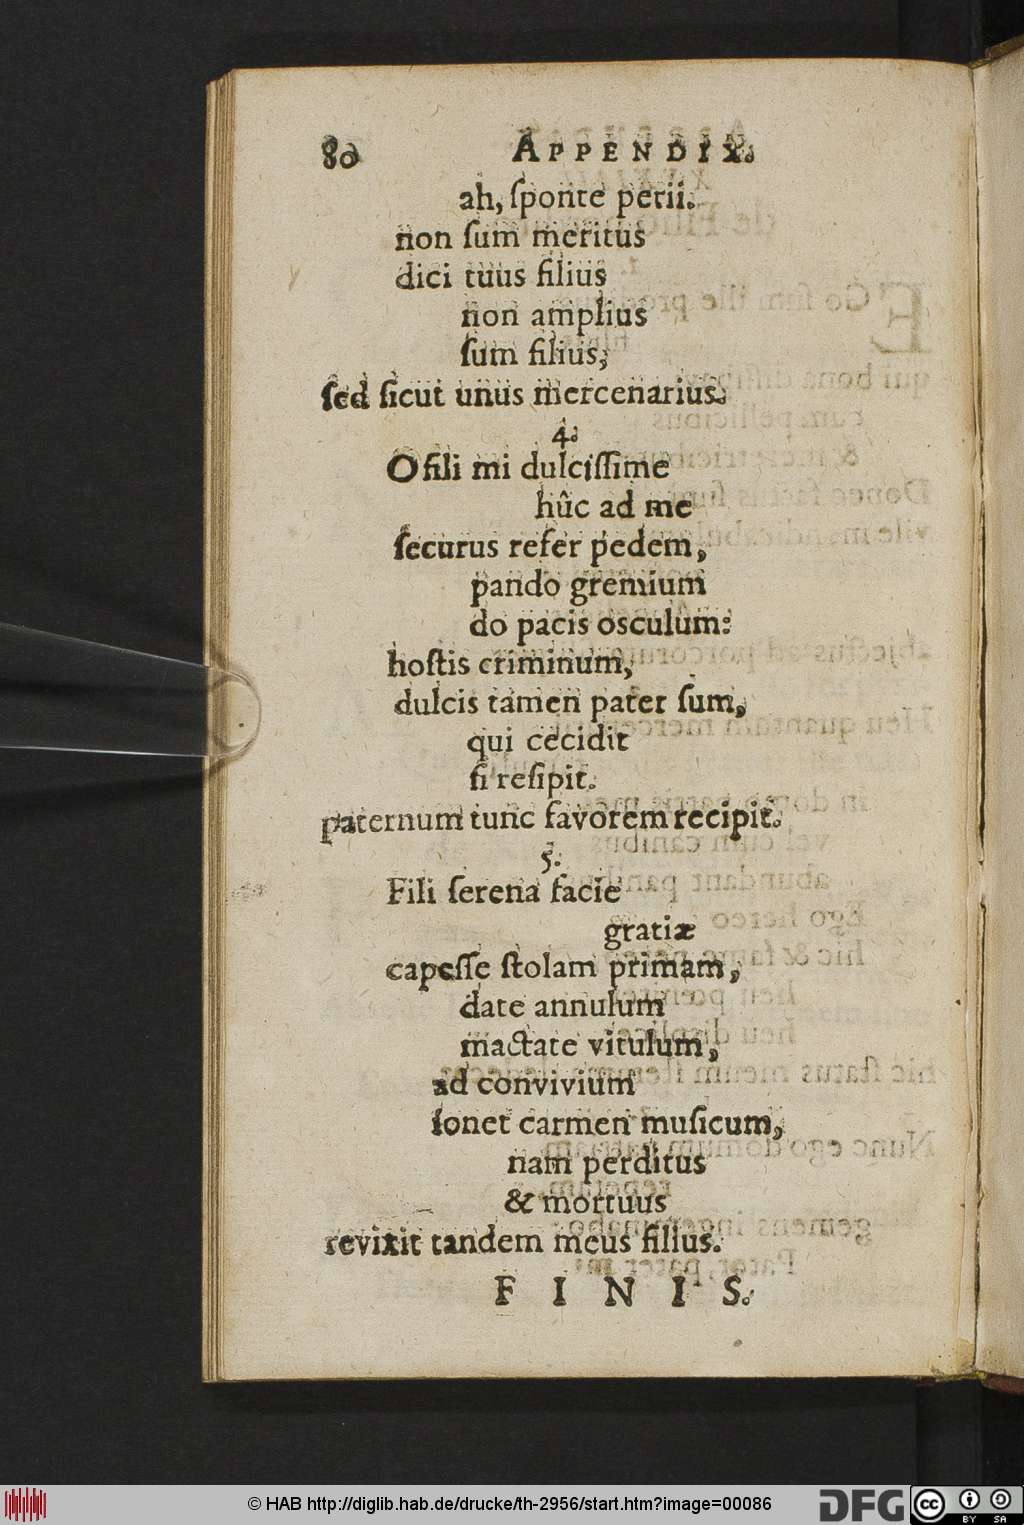 80 APPENDIX.
ah, ſponte perii.
non ſum meritus
dici tuus filius
non amplius
ſum filius,
ſed ſicut unus mercenarius.
4.
O fili mi dulciſſime
hûc ad me
ſecurus refer pedem,
pando gremium
do pacis osculum:
hoſtis criminum,
dulcis tamen pater ſum,
qui cecidit
ſi reſipit.
paternum tunc favorem recipit.
5.
Fili ſerena facie
gratiæ
capeſſe ſtolam primam,
date annulum
mactate vitulum,
ad convivium
ſonet carmen muſicum,
nam perditus
& mortuus
revixit tandem meus filius.
FINIS.
© HAB http://diglib.hab.de/drucke/th-2956/start.htm?image=00086
DFG
cc BY SA